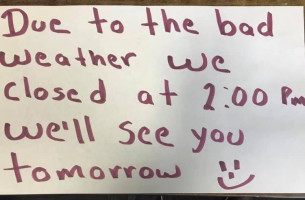 Due to the bad
weather we
closed at 2:00 Pm
we'll see you
tomorrow